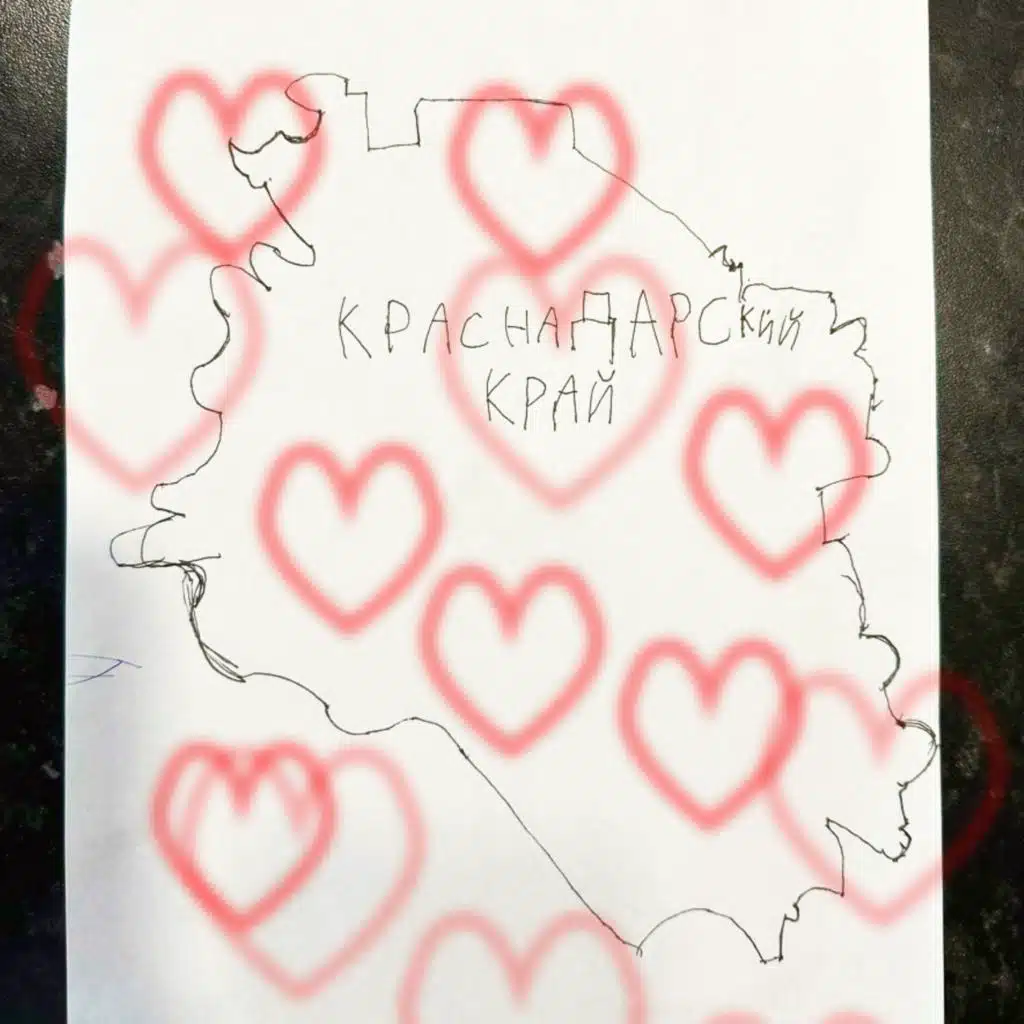 КРАСНАДАРСКИЙ
КРАЙ